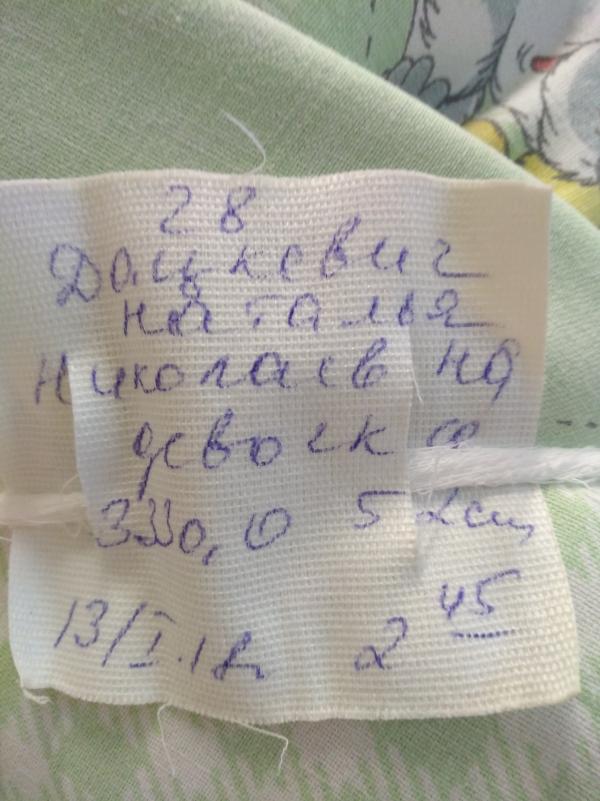 28
Дацкевич
Наталья
Николаевна
девочка
3350,0 52см
13/I.18 2 45